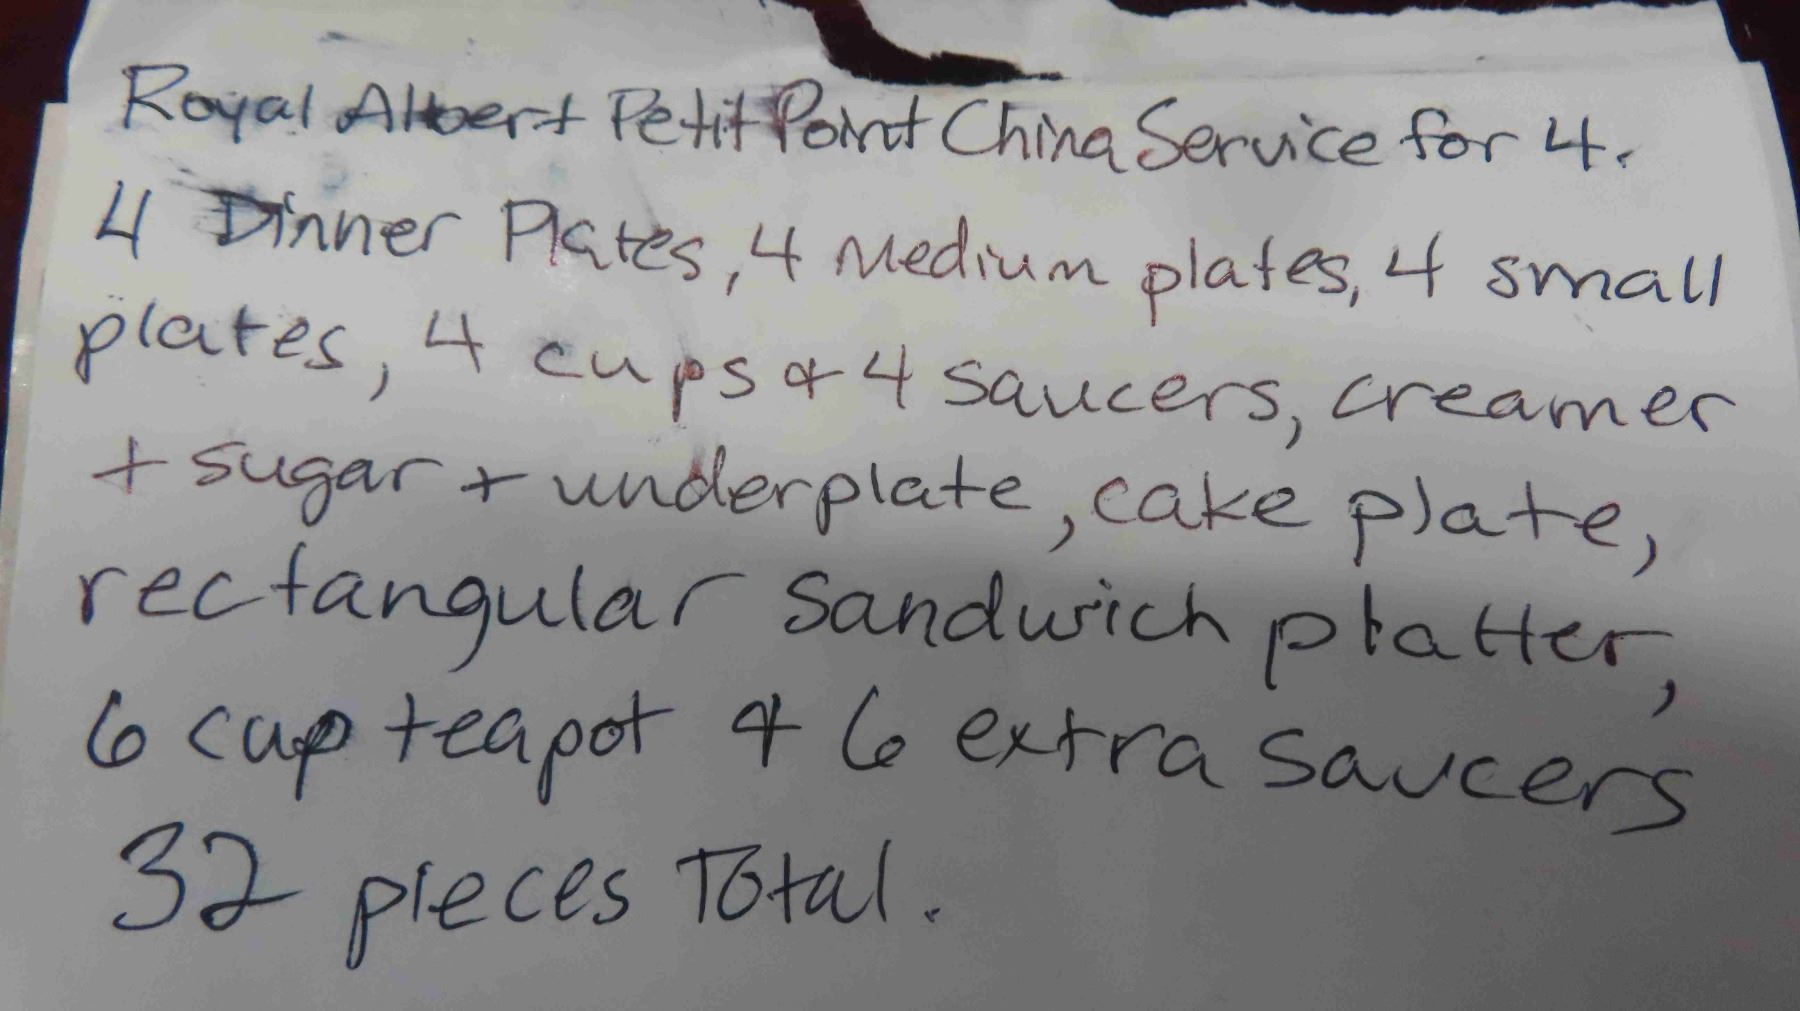 Royal Albert Petit Point China Service for 4.
4 Dinner Plates, 4 Medium plates, 4 small
plates, 4 cups & 4 saucers, creamer
+ sugar + underplate, cake plate,
rectangular sandwich platter,
6 cup teapot & 6 extra saucers
32 pieces Total.